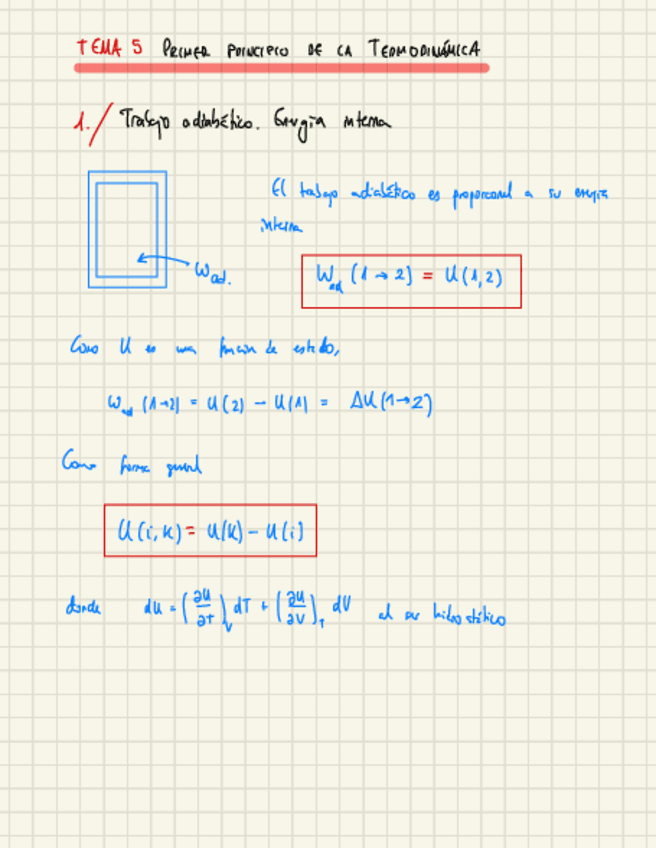 TEMA 5 PRIMER PRINCIPIO DE LA TERMODINÁMICA
1./ Trabajo adiabático. Energía interna
El trabajo adiabático es proporcional a su energía
interna
W_ad.
W_ad (1→2) = U(1,2)
Como U es una función de estado,
W_ad (1→2) = U(2) - U(1) = ΔU(1→2)
Como forma general
U(i,k) = U(k) - U(i)
donde dU = (∂U/∂T)_V dT + (∂U/∂V)_T dV al ser hidrostático